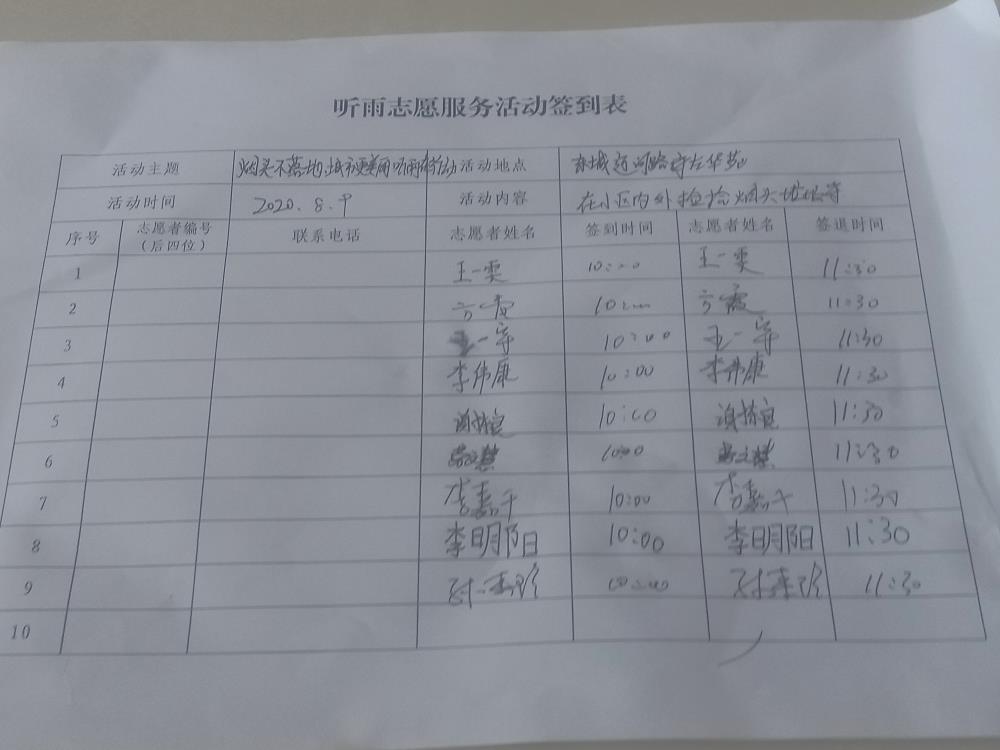 听雨志愿服务活动签到表
活动主题 烟头不落地,城市更美丽听雨在行动 活动地点
活动时间 2020.8.9 活动内容 在小区内外捡捡烟头垃圾等
序号 志愿者编号(后四位) 联系电话 志愿者姓名 签到时间 志愿者姓名 签退时间
1 王一雯 10:00 王一雯 11:30
2 方霞 10:00 方霞 11:30
3 王一宇 10:00 王一宇 11:30
4 李伟康 10:00 李伟康 11:30
5 10:00 11:30
6 10:00 11:30
7 李嘉千 10:00 李嘉千 11:30
8 李明阳 10:00 李明阳 11:30
9 10:00 11:30
10